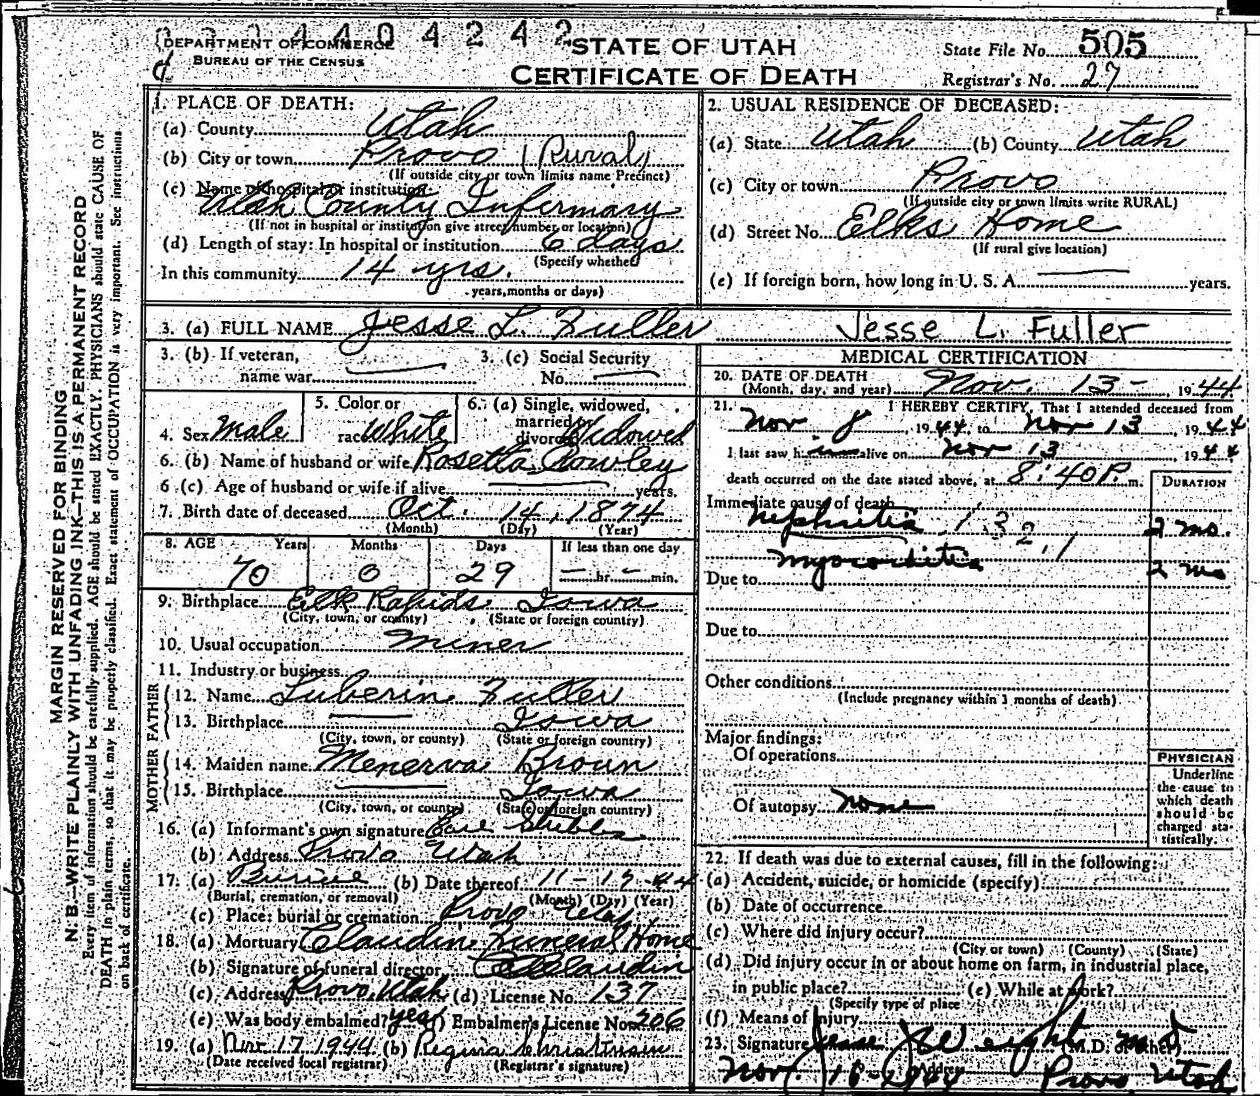 3 3 4 4 0 4 2 4 2
DEPARTMENT OF COMMERCE
BUREAU OF THE CENSUS
STATE OF UTAH
CERTIFICATE OF DEATH
State File No. 505
Registrar's No. 27
MARGIN RESERVED FOR BINDING
N. B.—WRITE PLAINLY WITH UNFADING INK—THIS IS A PERMANENT RECORD
Every item of information should be carefully supplied. AGE should be stated EXACTLY. PHYSICIANS should state CAUSE OF
DEATH in plain terms, so that it may be properly classified. Exact statement of OCCUPATION is very important. See instructions
on back of certificate.
1. PLACE OF DEATH:
(a) County Utah
(b) City or town Provo (Rural)
(If outside city or town limits name Precinct)
(c) Name of hospital or institution:
Utah County Infirmary
(If not in hospital or institution give street number or location)
(d) Length of stay: In hospital or institution 6 days
(Specify whether
In this community 14 yrs.
years, months or days)
2. USUAL RESIDENCE OF DECEASED:
(a) State Utah (b) County Utah
(c) City or town Provo
(If outside city or town limits write RURAL)
(d) Street No. Elks Home
(If rural give location)
(e) If foreign born, how long in U. S. A. — years.
3. (a) FULL NAME Jesse L. Fuller Jesse L. Fuller
3. (b) If veteran,
name war
3. (c) Social Security
No.
4. Sex Male
5. Color or
race White
6. (a) Single, widowed,
married or
divorced Widowed
6. (b) Name of husband or wife Rosetta Rowley
6. (c) Age of husband or wife if alive years.
7. Birth date of deceased Oct. 14, 1874
(Month) (Day) (Year)
8. AGE Years Months Days If less than one day
70 0 29 — hr. — min.
9. Birthplace Elk Rapids Iowa
(City, town, or county) (State or foreign country)
10. Usual occupation Miner
11. Industry or business
FATHER
12. Name Luberin Fuller
13. Birthplace Iowa
(City, town, or county) (State or foreign country)
MOTHER
14. Maiden name Menerva Brown
15. Birthplace Iowa
(City, town, or county) (State or foreign country)
16. (a) Informant's own signature Stubbs
(b) Address Provo Utah
17. (a) (b) Date thereof 11-17-44
(Burial, cremation, or removal) (Month) (Day) (Year)
(c) Place: burial or cremation Provo Utah
18. (a) Mortuary Claudin Funeral Home
(b) Signature of funeral director Claudin
(c) Address Provo, Utah (d) License No. 137
(e) Was body embalmed? yes (f) Embalmer's License No. 206
19. (a) Nov 17 1944 (b) Regina Christensen
(Date received local registrar) (Registrar's signature)
MEDICAL CERTIFICATION
20. DATE OF DEATH
(Month, day, and year) Nov. 13 - , 1944
21. I HEREBY CERTIFY, That I attended deceased from
Nov 8, 1944, to Nov 13, 1944
I last saw him alive on Nov 13, 1944
death occurred on the date stated above, at 8:40 P. m.
DURATION
Immediate cause of death
nephritis 132.1 2 mo.
myocarditis 2 mo
Due to
Due to
Other conditions
(Include pregnancy within 3 months of death)
Major findings:
Of operations
Of autopsy none
PHYSICIAN
Underline
the cause to
which death
should be
charged sta-
tistically.
22. If death was due to external causes, fill in the following:
(a) Accident, suicide, or homicide (specify)
(b) Date of occurrence
(c) Where did injury occur?
(City or town) (County) (State)
(d) Did injury occur in or about home on farm, in industrial place,
in public place? (e) While at work?
(Specify type of place
(f) Means of Injury
23. Signature Jesse J Weight m d
M.D. or other
Nov. 16-1944 Address Provo, Utah